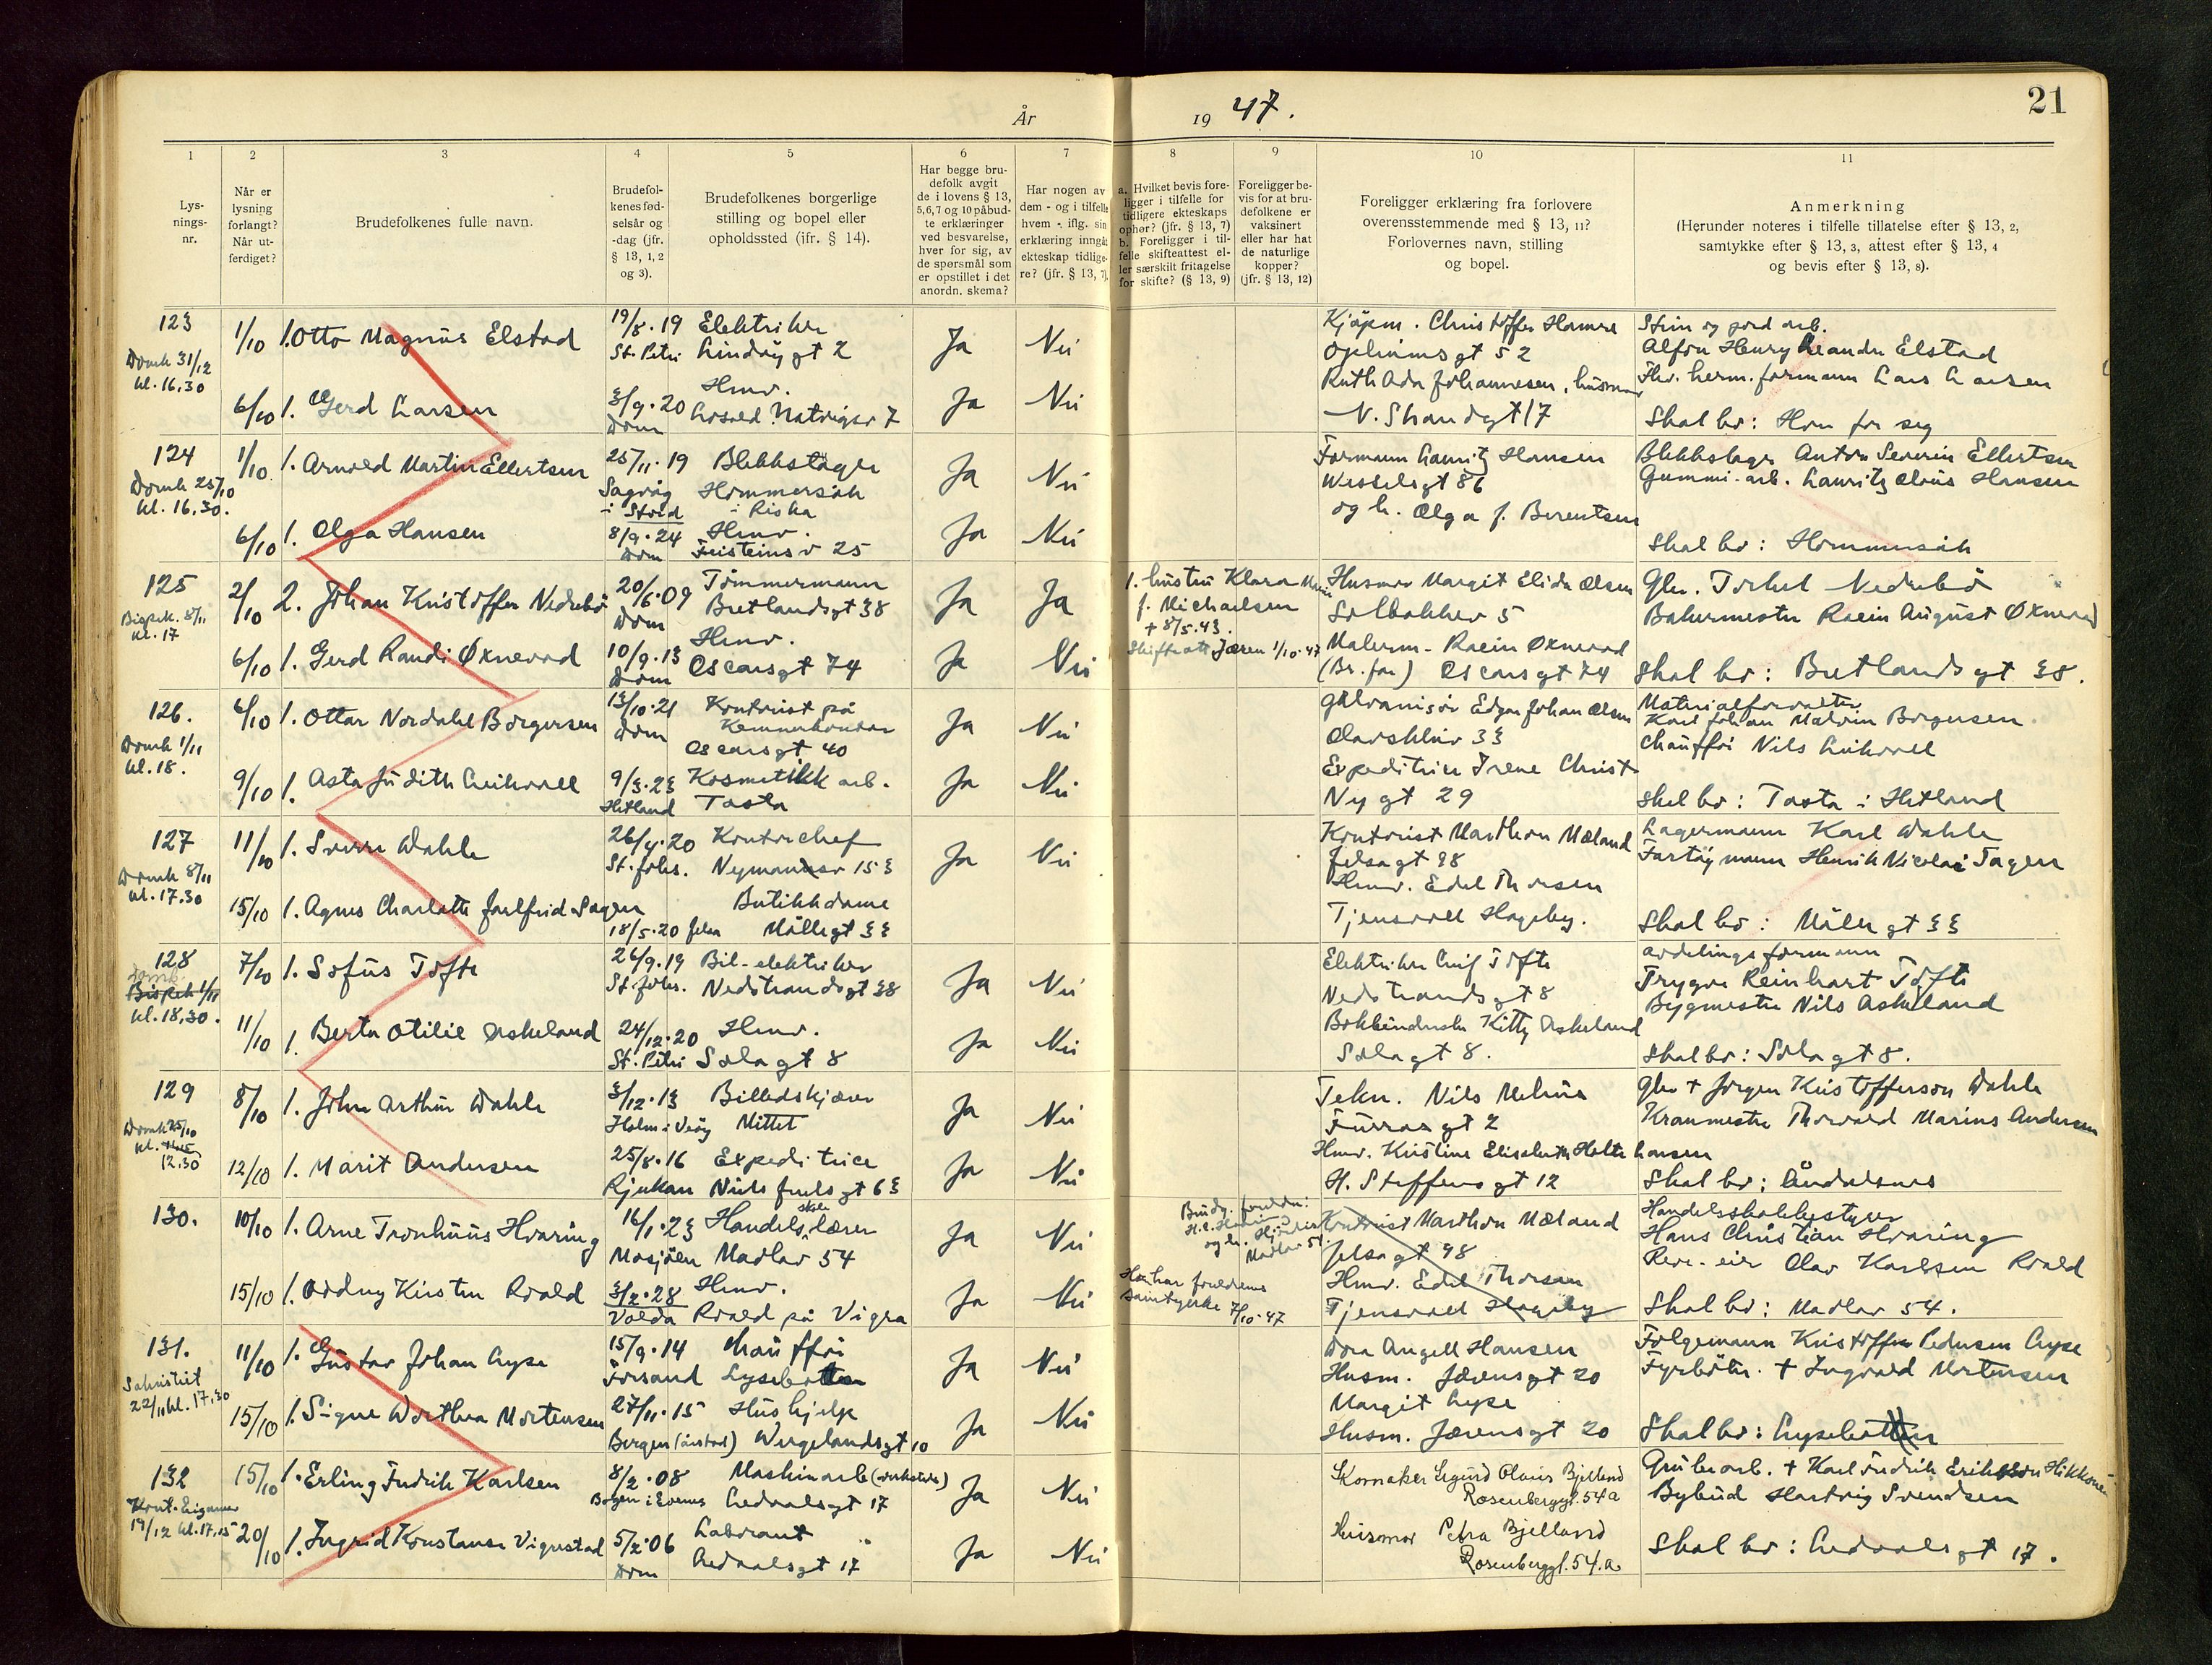 År
19 47.
21
1
2
3
4
5
6
7
8
9
10
11
Lys-
nings-
nr.
Når er
lysning
forlangt?
Når ut-
ferdiget?
Brudefolkenes fulle navn.
Brudefol-
kenes fød-
selsår og
-dag (jfr.
§ 13, 1, 2
og 3).
Brudefolkenes borgerlige
stilling og bopel eller
opholdssted (ifr. § 14).
Har begge bru-
defolk avgit
de i lovens § 13,
5,6,7 og 10 påbud-
te erklæringer
ved besvarelse,
hver for sig, av
de spørsmål som
er opstillet i det
anordn. skema?
Har nogen av
dem - og i tilfelle
hvem - iflg. sin
erklæring inngåt
ekteskap tidlige-
re? (jfr. § 13, 7).
a. Hvilket bevis fore-
ligger i tilfelle for
tidligere ekteskaps
ophør? (jfr. § 13, 7)
b. Foreligger i til-
felle skifteattest el-
ler særskilt fritagelse
for skifte? (§ 13, 9)
Foreligger be-
vis for at bru-
defolkene er
vaksinert
eller har hat
de naturlige
kopper?
(jfr. § 13, 12)
Foreligger erklæring fra forlovere
overensstemmende med § 13, 11?
Forlovernes navn, stilling
og bopel.
Anmerkning
(Herunder noteres i tilfelle tillatelse efter § 13, 2,
samtykke efter § 13, 3, attest efter § 13, 4
og bevis efter § 13, 8).
123
Domk 31/12
kl. 16.30
1/10 1. Otto Magnus Elstad
19/8.19 Elektriker
St. Petri Lindøygt 2
Ja Nei
6/10 1. Gerd Larsen
3/9.20 Hmv.
Dom 7
Ja Nei
Kjøpm. Christoffer Hamre
Opheimsgt 52
Ruth Ada Johannesen, husmor
N. Strandgt 17
Alfon Henry Leander Elstad
Hv. herm. formann Lars Larsen
Skal bo: Hver for seg
124
Domk 25/10
kl. 16.30.
1/10 1. Arnold Martin Ellertsen
25/11.19 Blekkslager
Sagvåg Hommersåk
i Stord i Riska
Ja Nei
6/10 1. Olga Hansen
8/9.24 Hmv.
Dom 25
Ja Nei
Formann Lauritz Hansen
Wesselsgt 86
og h. Olga f. Berentsen
Blekkslager Anton Severin Ellertsen
Gummi-arb. Lauritz Hansen
Skal bo: Hommersåk
125
Bispek. 8/11
kl. 17
2/10 2. Johan Kristoffer Nedrebø
20/6.09 Tømmermann
Dom Bretlandsgt 38
Ja Ja
6/10 1. Gerd Randi Øxnevad
10/9.13 Hmv.
Dom Oscarsgt 74
Ja Nei
1. hustru Klara
f. Michaelsen
+ 8/5.43.
Skifteatt Jæren 1/10.47
Husmor Margit Elida Olsen
Solbakkev 5
Malerm. Raein Øxnevad
(Br. far) Oscarsgt 74
Gbr. Torkel Nedrebø
Bakermester Raein August Øxnevad
Skal bo: Bretlandsgt 38.
126.
Domk 1/11
kl. 18.
6/10 1. Ottar Nordahl Borgersen
13/10.21 Kontorist på
Dom Kemnerkontor
Oscarsgt 40
Ja Nei
9/10 1. Asta Judith Leikvoll
9/3.23 Kosmetikk arb.
Hetland Tasta
Ja Nei
Galvanisør Edgar Johan Olsen
Olavskleiv 33
Expeditrise Irene Christ
Nygt 29
Materialforvalter
Karl Johan Borgersen
Chauffør Nils Leikvoll
Skal bo: Tasta i Hetland
127
Domk 8/11
kl. 17.30
11/10 1. Sverre Dahle
26/4.20 Kontorchef
St. Johs. Nymansv 153
Ja Nei
15/10 1. Agnes Charlotte Jarlfrid Tagen
Butikkdame
18/5.20 Jelsa Møllegt 33
Kontorist Marthon Mæland
Jelsagt 98
Hmv. Edel Thorsen
Tjensvoll Hageby.
Lagermann Karl Dahle
Fartøymann Henrik Nicolai Tagen
Skal bo: Møllegt 33
128
Domk
Bispek 1/11
kl. 18,30.
7/10 1. Sofus Tofte
26/9.19 Bil-elektriker
St. Johs. Nedstrandsgt 38
Ja Nei
11/10 1. Berta Otilie Askeland
24/12.20 Hmv.
St. Petri Solagt 8
Ja Nei
Elektriker Leif Tofte
Nedstrandsgt 8
Bokbinderske Kitty Askeland
Solagt 8.
avdelingsformann
Trygve Reinhart Tofte
Bygmester Nils Askeland
Skal bo: Solagt 8.
129
Domk 25/10
kl.
12.30
8/10 1. John Arthur Dahle
3/12.13 Billedskjærer
Holm i Veøy Mittet
Ja Nei
12/10 1. Marit Andersen
25/8.16 Expeditrice
Rjukan Niels Juelsgt 63
Ja Nei
Tekn. Nils Melhus
Furrasgt 2
Hmv. Kristine Elisabeth Holte Larsen
H. Steffensgt 12
Gbr + Jørgen Kristofferson Dahle
Kranmester Thorvald Marius Andersen
Skal bo: Åndalsnes
130.
10/10 1. Arne Tronhuus Hvaring
16/1.23 Handelsskolelærer
Mosjøen Madlav 54
Ja Nei
15/10 1. Oddny Kirsten Roald
3/2.28 Hmv.
Volda Roald på Vigra
Ja Nei
Hun har foreldrenes
samtykke 7/10.47
Kontorist Marthon Mæland
Jelsagt 98
Hmv. Edel Thorsen
Tjensvoll Hageby
Handelsskolebestyrer
Hans Christian Hvaring
Rev.-eier Olav Karlsen Roald
Skal bo: Madlav 54.
131.
Sakristiet
22/11 kl. 17.30
11/10 1. Gustav Johan Lyse
15/9.14 Chauffør
Forsand Lysebotten
Ja Nei
15/10 1. Signe Dorthea Mortensen
27/11.15 Hushjelp
Bergen (Årstad) Wergelandsgt 10
Ja Nei
Dora Angell Hansen
Husm. Jærensgt 20
Margit Lyse
Husm. Jærensgt 20
Følgemann Kristoffer Pedersen Lyse
Fyrbøter. + Ingvald Mortensen
Skal bo: Lysebotten
132
Kont. Eiganes
19/12 kl. 17.15
15/10 1. Erling Fredrik Karlsen
8/2.08 Maskinarb (verksted)
Bogen i Evenes Ledaalsgt 17
Ja Nei
20/10 1. Ingrid Konstanse Vigrestad
5/2.06 Laborant
Dom Ledaalsgt 17
Ja Nei
Skomaker Sigurd Olaus Bjelland
Rosenberggt. 54 a
Husmor Petra Bjelland
Rosenberggt. 54.a
Grubearb. + Karl Fredrik Erikson
Bybud Hartvig Svendsen
Skal bo: Ledaalsgt 17.